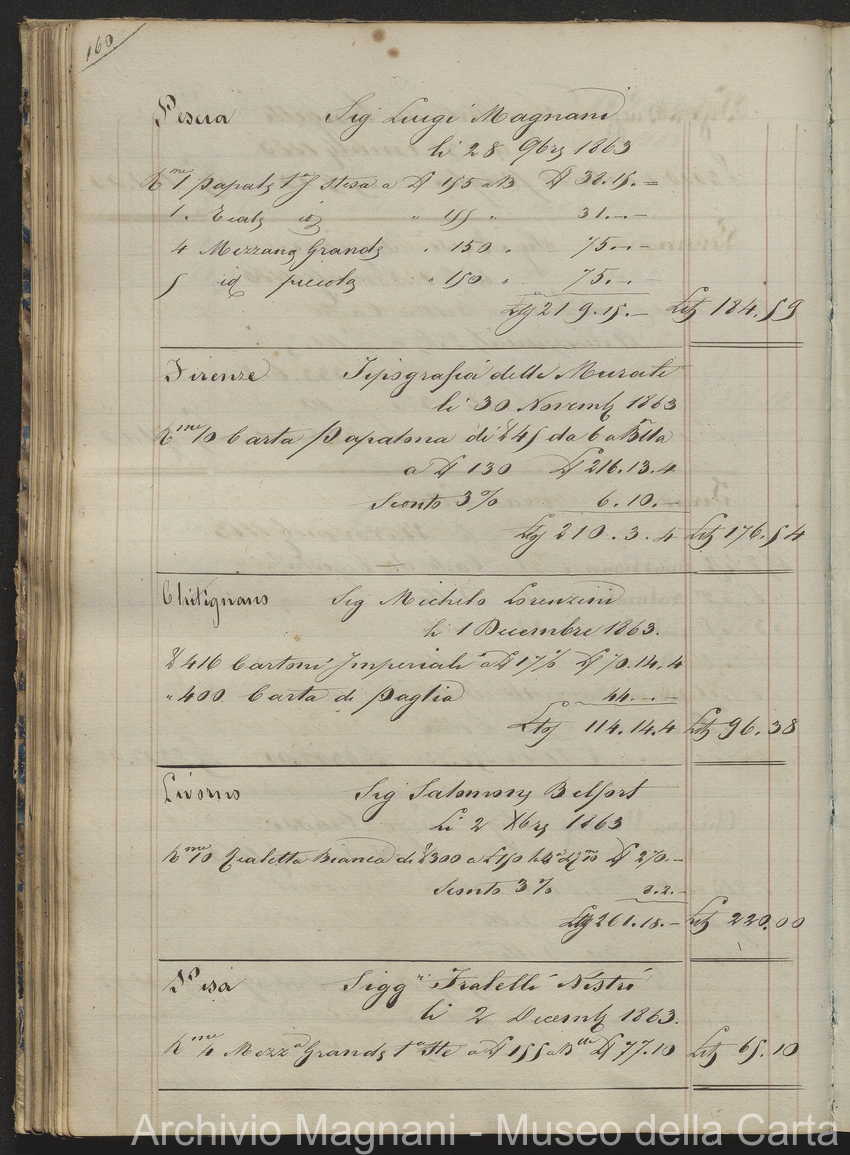 160
Pescia Sig Luigi Magnani
li 28 9bre 1863
1 1a Stesa a 155 a B 38.15.=
1 id " 155 " 31.-.-
4 Mezzana Grande " 150 " 75.-.-
5 id piccola " 150 " 75.-.-
219.15.- 184.59
Firenze Tipografia delle Murate
li 30 Novemb 1863
Rme 10 Carta Papalona di 45 da 6 a Btta
a 130 216.13.4
Sconto 3% 6.10.-
210.3.4 176.54
Chitignano Sig Michele Lorenzini
li 1 Decembre 1863.
416 Cartoni Imperiali a 17% 70.14.4
" 400 Carta di Paglia 44.-.
114.14.4 96.38
Livorno Sig Salomone Belfort
li 2 Xbre 1863
Rme 10 Bianca di 300 a 270.-
Sconto 3% 8.2.-
261.18.- 220.00
Pisa Sigg.ri Fratelli Nistri
li 2 Decemb 1863.
Rme 4 Mezz.a Grande 1a Ste a 155 a Btta 77.10 65.10
Archivio Magnani - Museo della Carta